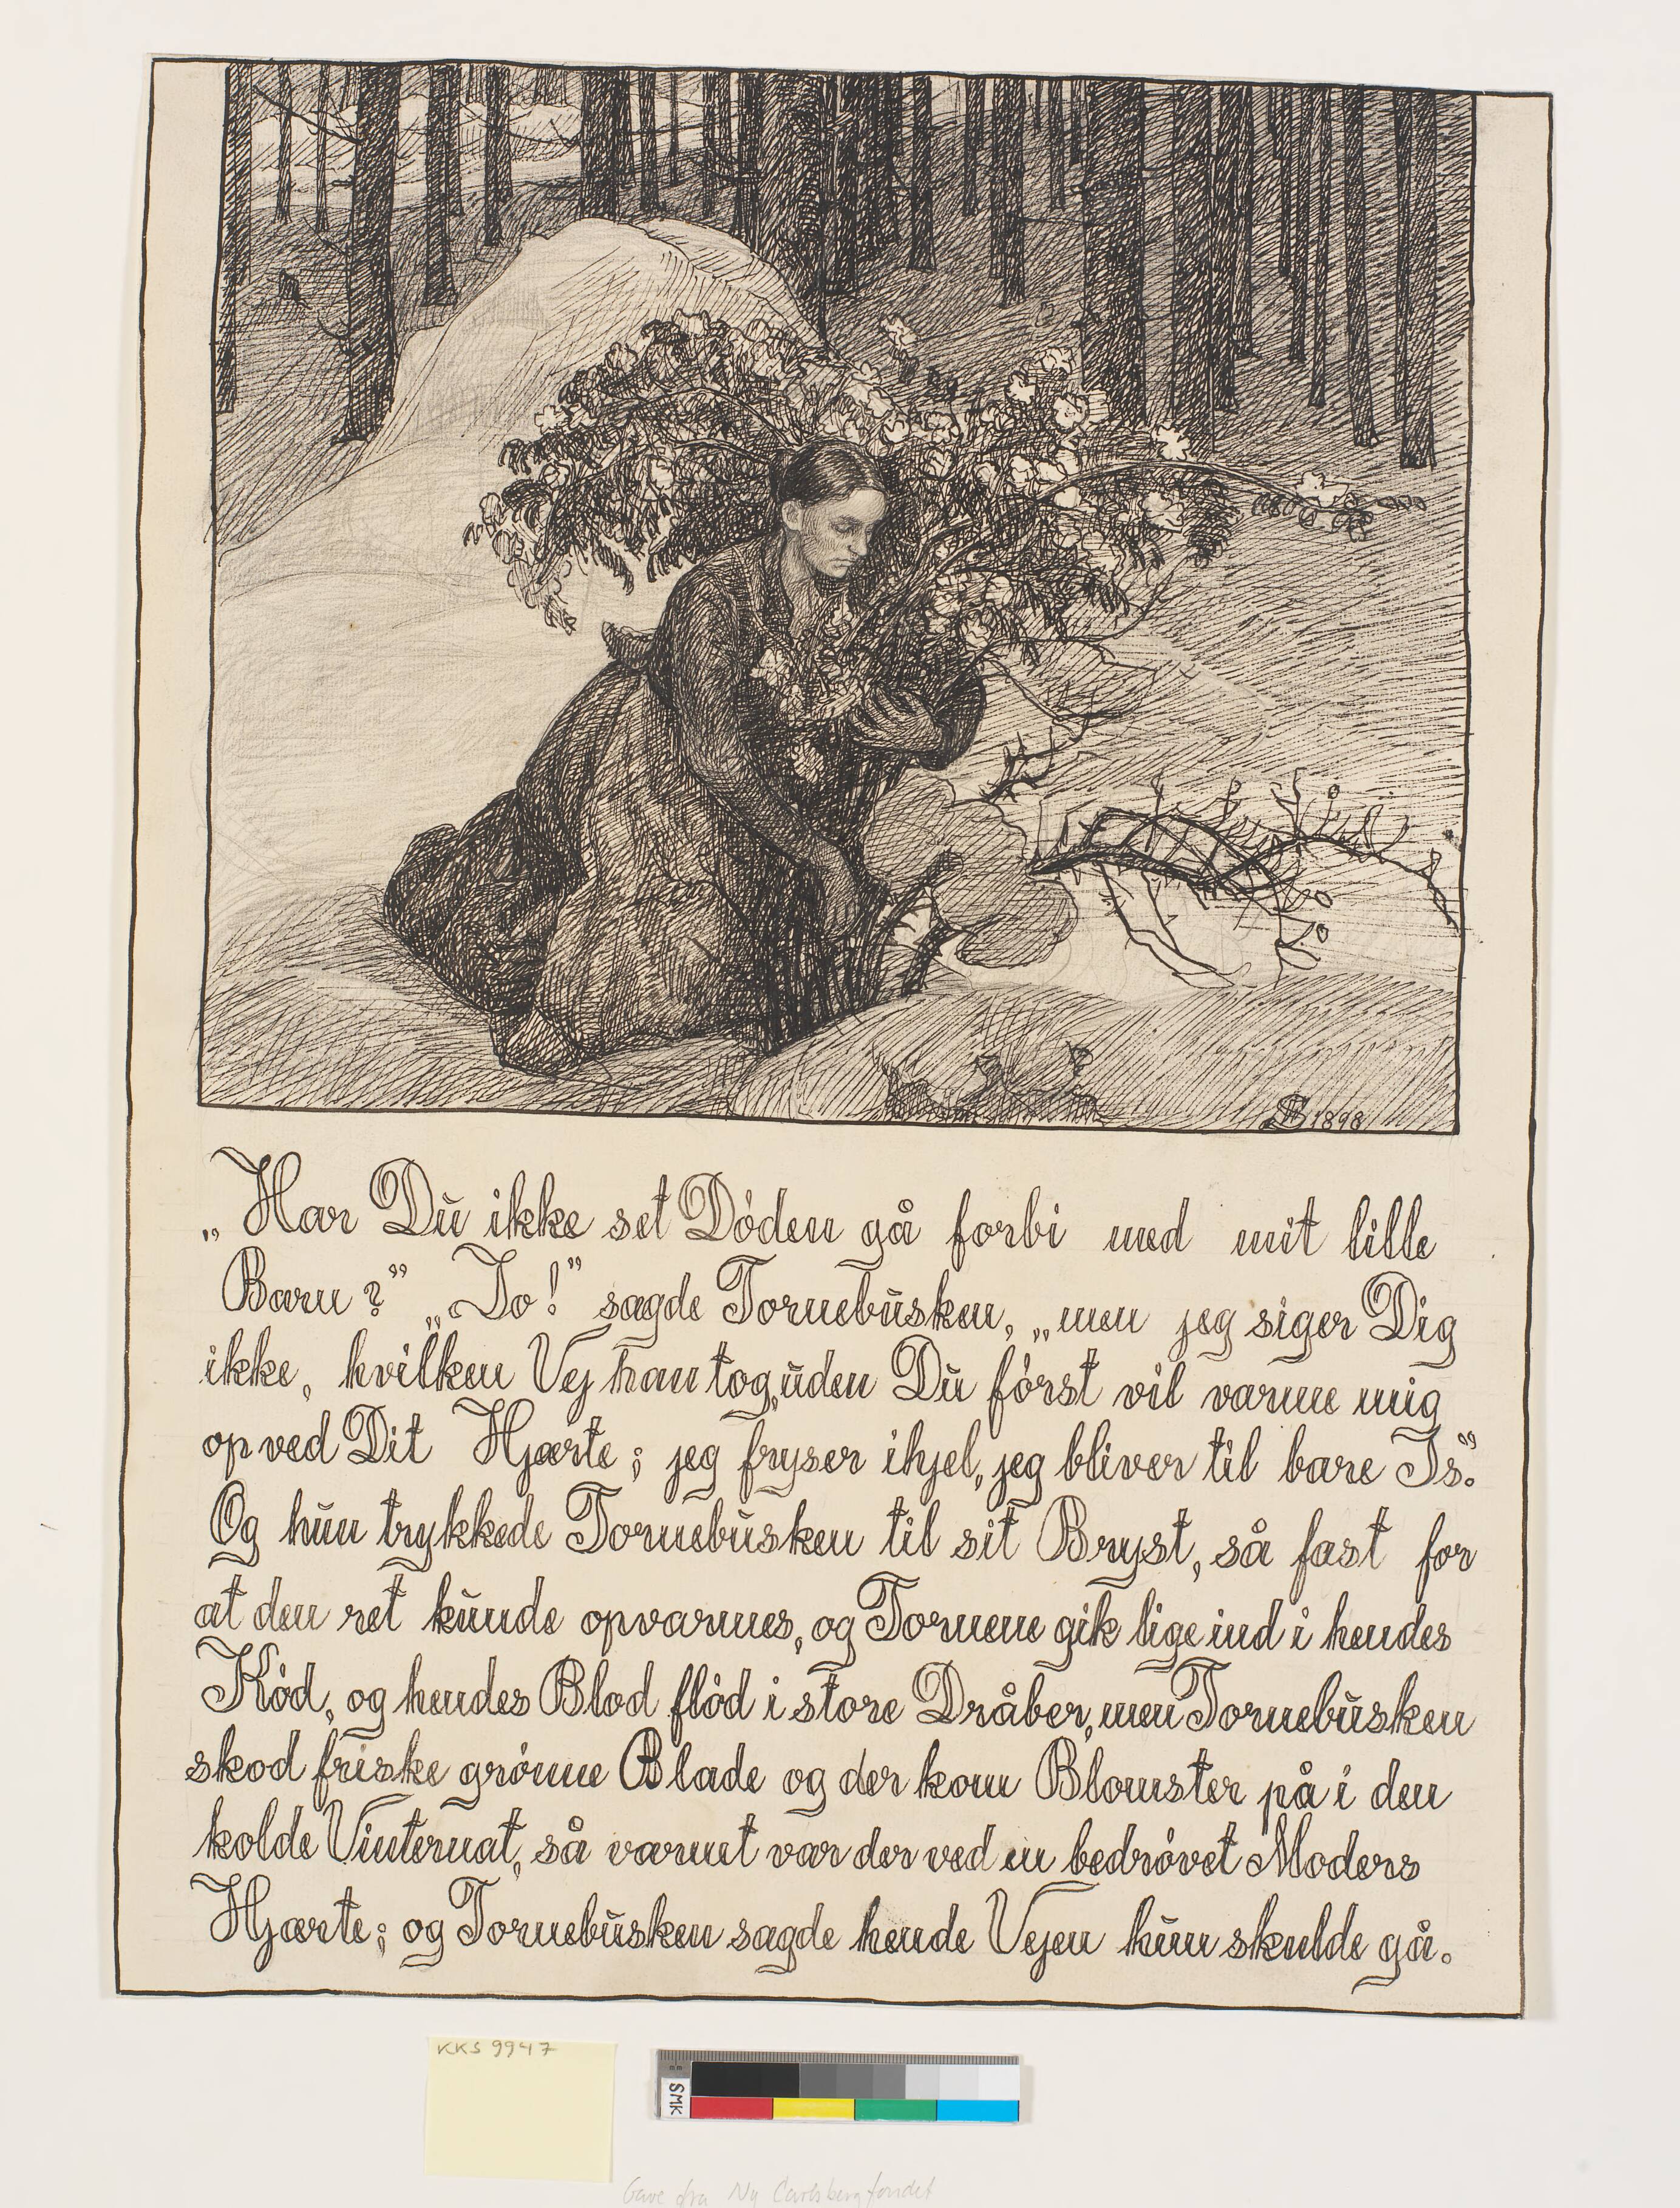 1898
„Har Du ikke set Døden gå forbi med mit lille
Barn?” „Jo!” sagde Tornebusken, „men jeg siger Dig
ikke, hvilken Vej han tog, uden Du først vil varme mig
op ved Dit Hjærte; jeg fryser ihjel, jeg bliver til bare Is.”
Og hun trykkede Tornebusken til sit Bryst, så fast for
at den ret kunde opvarmes, og Tornene gik lige ind i hendes
Kød, og hendes Blod flød i store Dråber, men Tornebusken
skod friske grønne Blade og der kom Blomster på i den
kolde Vinternat, så varmt var der ved en bedrøvet Moders
Hjærte; og Tornebusken sagde hende Vejen hun skulde gå.
KKS 9947
mm
SMK
Gave fra Ny Carlsbergfondet